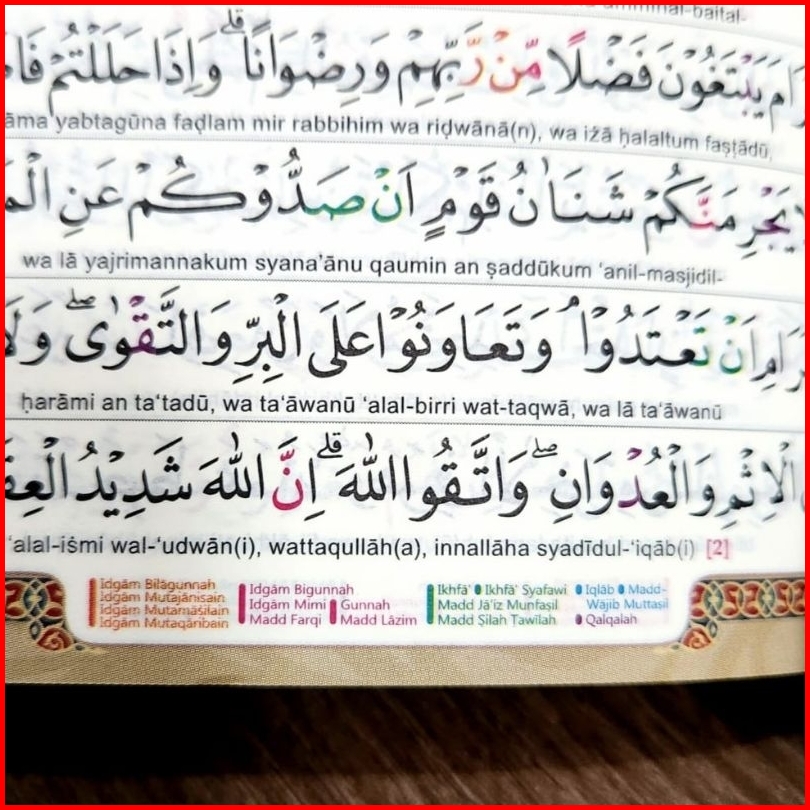 amminal-baital-
يَبْتَغُوْنَ فَضْلًا مِّنْ رَّبِّهِمْ وَرِضْوَانًا ۗ وَاِذَا حَلَلْتُمْ
yabtagūna faḍlam mir rabbihim wa riḍwānā(n), wa iżā ḥalaltum faṣṭādū,
يَجْرِمَنَّكُمْ شَنَاٰنُ قَوْمٍ اَنْ صَدُّوْكُمْ عَنِ
wa lā yajrimannakum syana'ānu qaumin an ṣaddūkum 'anil-masjidil-
اَنْ تَعْتَدُوْا ۘ وَتَعَاوَنُوْا عَلَى الْبِرِّ وَالتَّقْوٰى ۖ وَلَا
ḥarāmi an ta'tadū, wa ta'āwanū 'alal-birri wat-taqwā, wa lā ta'āwanū
الْاِثْمِ وَالْعُدْوَانِ ۖ وَاتَّقُوا اللّٰهَ ۗ اِنَّ اللّٰهَ شَدِيْدُ
'alal-iṡmi wal-'udwān(i), wattaqullāh(a), innallāha syadīdul-'iqāb(i) [2]
Idgām Bilāgunnah
Idgām Mutajānisain
Idgām Mutamāṡilain
Idgām Mutaqāribain
Idgām Bigunnah
Idgām Mimi Gunnah
Madd Farqi Madd Lāzim
Ikhfā' Ikhfā' Syafawi
Madd Jā'iz Munfaṣil
Madd Ṣilah Ṭawīlah
Iqlāb Madd-
Wājib Muttaṣil
Qalqalah